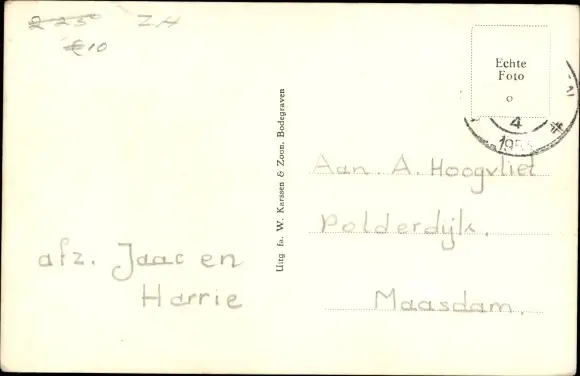 2 25 ZH
€10
Echte
Foto
4
195
Uitg fa. W. Karssen & Zoon, Bodegraven
Aan. A. Hoogvliet
Polderdijk.
Maasdam.
afz. Jaac en
Harrie